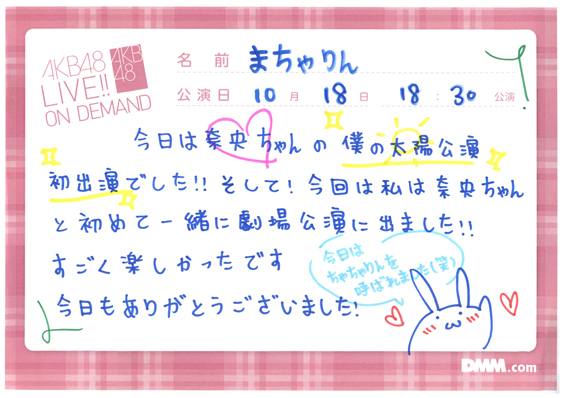 AKB48
LIVE!!
ON DEMAND
AKB
48
名前 まちゃりん
公演日 10月 18日 18:30 公演
今日は奈央ちゃんの僕の太陽公演
初出演でした!! そして! 今回は私は奈央ちゃん
と初めて一緒に劇場公演に出ました!!
すごく楽しかったです
今日もありがとうございました!
今日は
ちゃちゃりんを
呼ばれました(笑)
DMM.com